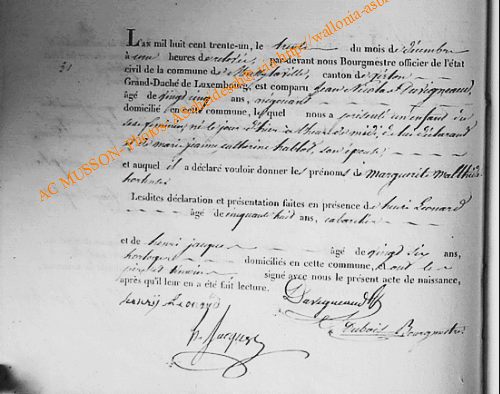 31
L'AN mil huit cent trente-un, le trente du mois de décembre
à une heures de relevée par-devant nous Bourgmestre officier de l'état
civil de la commune de canton de Virton
Grand-Duché de Luxembourg, est comparu Jean Nicolas
âgé de vingt cinq ans, négociant
domicilié en cette commune, lequel nous a présenté un enfant du
sexe féminin, né le jour d'hier à heures de midi, de lui déclarant
et de marie jeanne catherine son épouse
et auquel il a déclaré vouloir donner les prénoms de Marguerite
hortense
Lesdites déclaration et présentation faites en présence de henri Léonard
âgé de cinquante huit ans, cabaretier
et de henri jacques âgé de vingt six ans,
horloger domiciliés en cette commune, et ont le
père et témoins signé avec nous le présent acte de naissance,
après qu'il leur en a été fait lecture.
henry Léonard
h. Jacques
Dubois Bourgmestre
AC MUSSON-Photos http://wallonia-asb